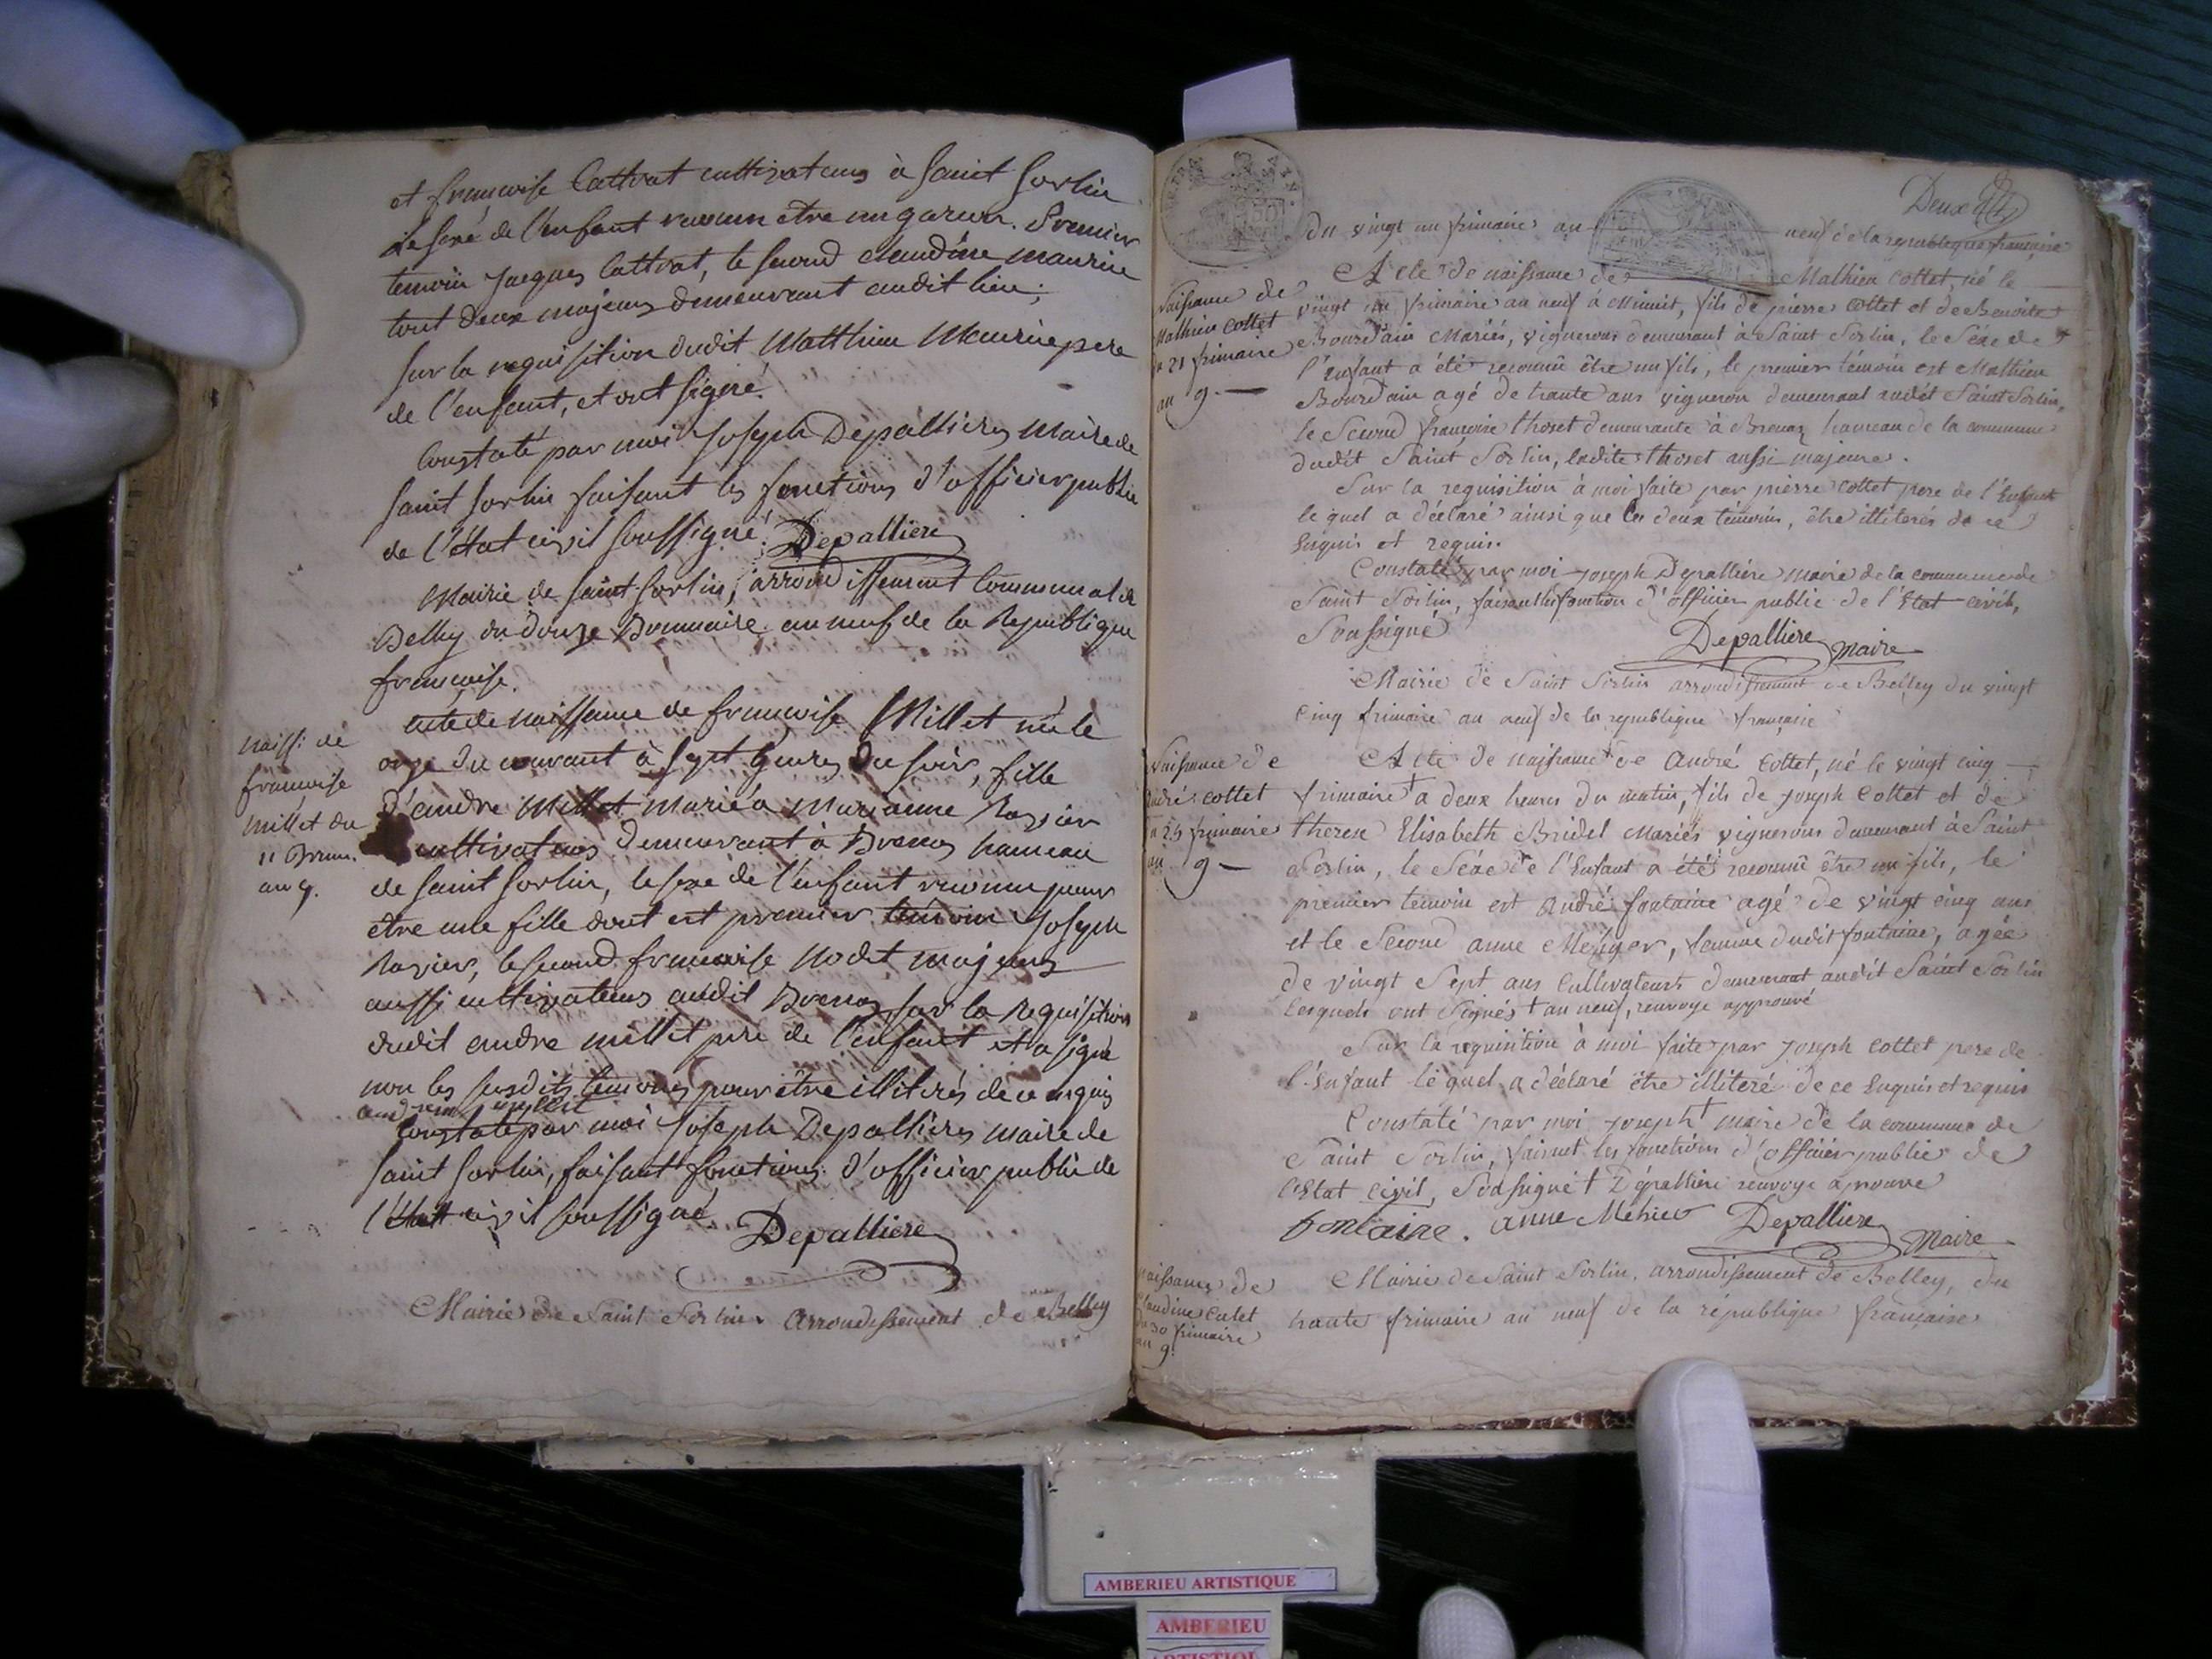 et francoise Cattrat cultivateurs à Saint Sorlin
Le sexe de l'enfant reconnu etre un garcon. Premier
temoin Jacques Cattrat, le second claudine maurin
tout deux majeurs demeurant audit lieu;
Sur la requisition dudit Matthieu Maurin pere
de l'enfant, et ont signé.
Constaté par moi Joseph Depallieres Maire de
Saint Sorlin faisant les fonctions d'officier public
de l'état civil soussigné. Depalliere
Mairie de Saint Sorlin, arrondissement Communal de
Belley du douze Brumaire an neuf de la Republique
francoise.
naiss: de
francoise
millet du
11 Brum.
an 9.
acte de naissance de francoise Millet née le
onze du courant à sept heures du soir, fille
d'andre Millet marié a Marianne Ravier
cultivateurs demeurant à Brenas hameau
de Saint Sorlin, le sexe de l'enfant reconnu pour
être une fille dont est premier temoin Joseph
Ravier, le second francoise Nodet majeurs
aussi cultivateurs audit Brenas sur la Requisition
dudit andre millet pere de l'enfant et a signé
non les susdits temoins pour être illiterés de ce enquis
Constaté par moi Joseph Depallieres maire de
Saint Sorlin, faisant fonctions d'officier public de
l'état civil soussigné. Depalliere
Mairie de Saint Sorlin arrondissement de Belley
Deux
du vingt un frimaire an neuf de la republique française
Naissance de
Mathieu Cottet
21 frimaire
an 9.
Acte de naissance de Mathieu Cottet, né le
vingt un frimaire an neuf à Minuit, fils de pierre Cottet et de Benoite
Bourdain Mariés, vignerons demeurant à Saint Sorlin, le Séxe de
l'enfant a été reconnû être un fils, le premier témoin est Mathieu
Bourdain agé de trante ans vigneron demeurant audit Saint Sorlin,
le Second françoise thoset demeurante à Brenaz hameau de la commune
dudit Saint Sorlin, ladite thoset aussi majeure.
Sur la requisition à moi faite par pierre Cottet pere de l'Enfant
lequel a déclaré ainsi que les deux temoins, être illiterés de ce
Enquis et requis.
Constaté par moi Joseph Depalliere maire de la commune de
Saint Sorlin, faisant les fonction d'officier public de l'Etat civil,
Soussigné Depalliere maire
Mairie de Saint Sorlin arrondissement de Belley du vingt
cinq frimaire an neuf de la republique française
Naissance de
André Cottet
25 frimaire
an 9
Acte de naissance de André Cottet, né le vingt cinq
frimaire + a deux heures du matin, fils de joseph Cottet et de
therese Elisabeth Bridel Mariés vignerons demeurant à Saint
Sorlin, le Séxe de l'Enfant a été reconnû être un fils, le
premier temoin est André fontaine agé de vingt cinq ans
et le Second anne Meyer, femme dudit fontaine, agée
de vingt Sept ans Cultivateurs demeurant audit Saint Sorlin
lesquels ont Signés + an neuf, renvoye approuvé
Sur la requisition à moi faite par joseph Cottet pere de
l'Enfant lequel a déclaré être illiteré de ce Enquis et requis
Constaté par moi joseph + maire de la commune de
Saint Sorlin, faisant les fonctions d'officier public de
l'Etat Civil, Soussigné + Dépalliere renvoye aprouvé
fontaine. anne Mehier Depalliere maire
Naissance de
Claudine Cutet
du 30 frimaire
an 9.
Mairie de Saint Sorlin, arrondissement de Belley, du
trante frimaire an neuf de la république française
AMBERIEU ARTISTIQUE
AMBERIEU
ARTISTIQUE